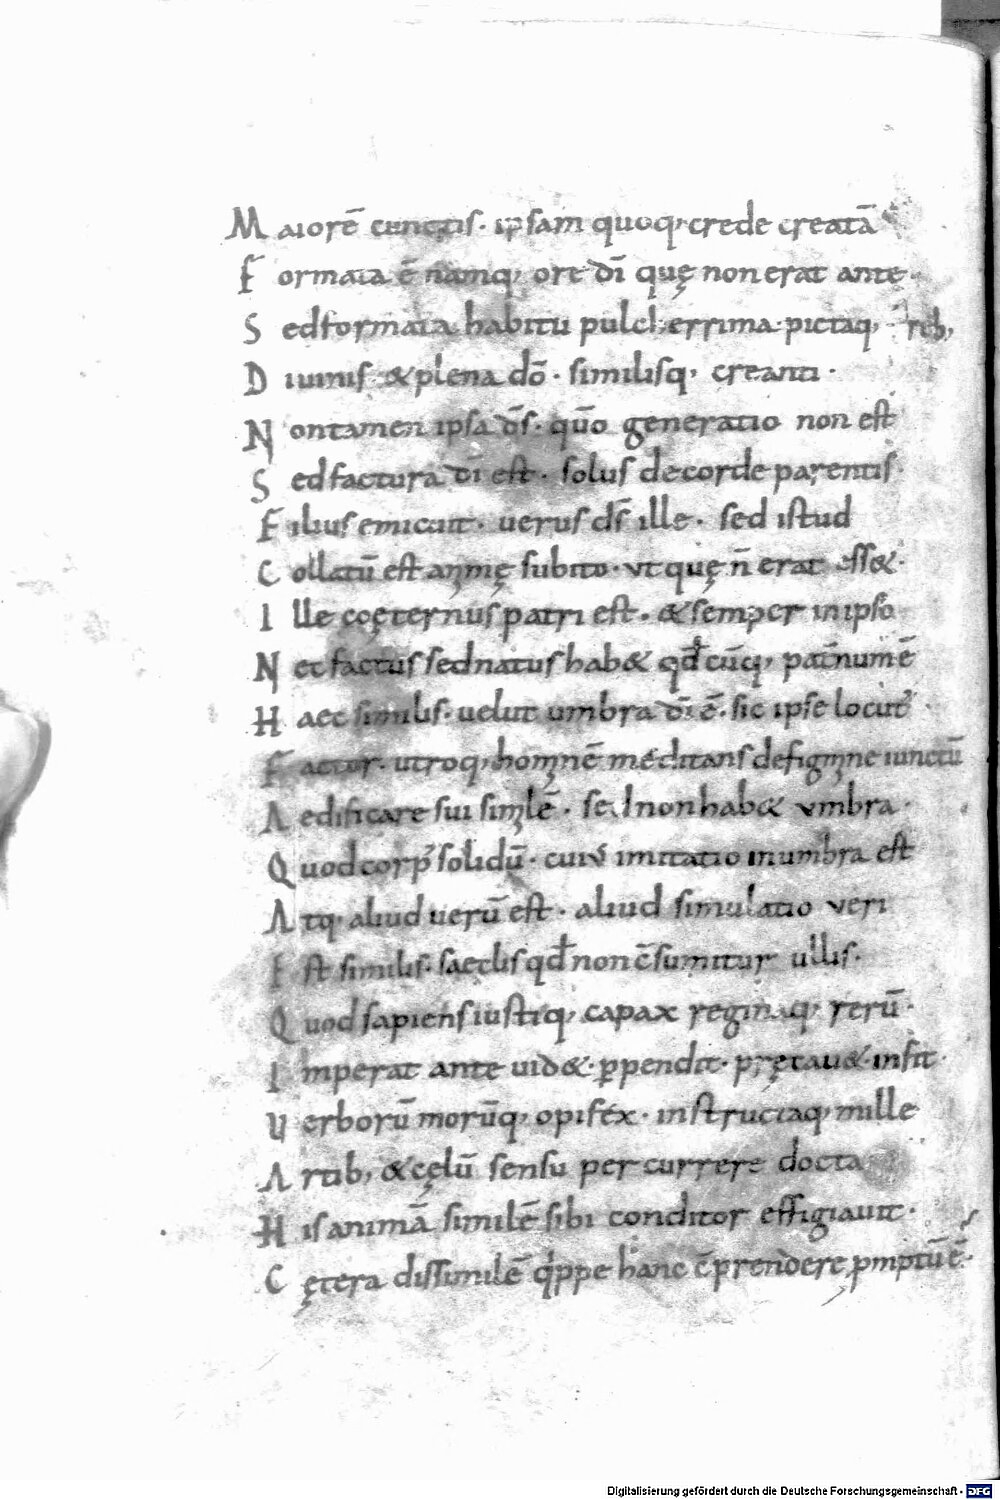 Maiorē cunctis· ipsam quoq; crede creatā
Formata ē namq; ore dī quę non erat ante·
Sed formata habitu pulcherrima· pictaq; reb;
Diuinis· & plena dō· similisq; creanti·
Non tamen ipsa ds̄· qūo generatio non est
Sed factura dī est· solus de corde parentis·
Filius emicuit· uerus ds̄ ille· sed istud
Collatū est animę subito· ut quę n̄ erat ess&·
Ille coęternus patri est· & semper in ipso
Nec factus sed natus hab& qd̄ cūq; pat̄num ē
Haec similis· uelut umbra dī ē· sic ipse locut'·
Factor· utroq; hominē meditans defigmine iunctū
Aedificare sui similē· sed non hab& umbra·
Quod corp' solidū· cui' imitatio in umbra est
Atq; aliud uerū est· aliud simulatio veri
Est similis· saeclis qd̄ non c̄sumitur ullis·
Quod sapiens iustiq; capax reginaq; rerū·
Imperat ante uid& p̱pendit· pręcau& insit·
Verborū morūq; opifex· instructaq; mille
Artib; & cęlū sensu percurrere docta
His animā similē sibi conditor effigiauit·
Cętera dissimilē q'ppe hanc c̄prendere p̱mptū ē·
Digitalisierung gefördert durch die Deutsche Forschungsgemeinschaft - DFG